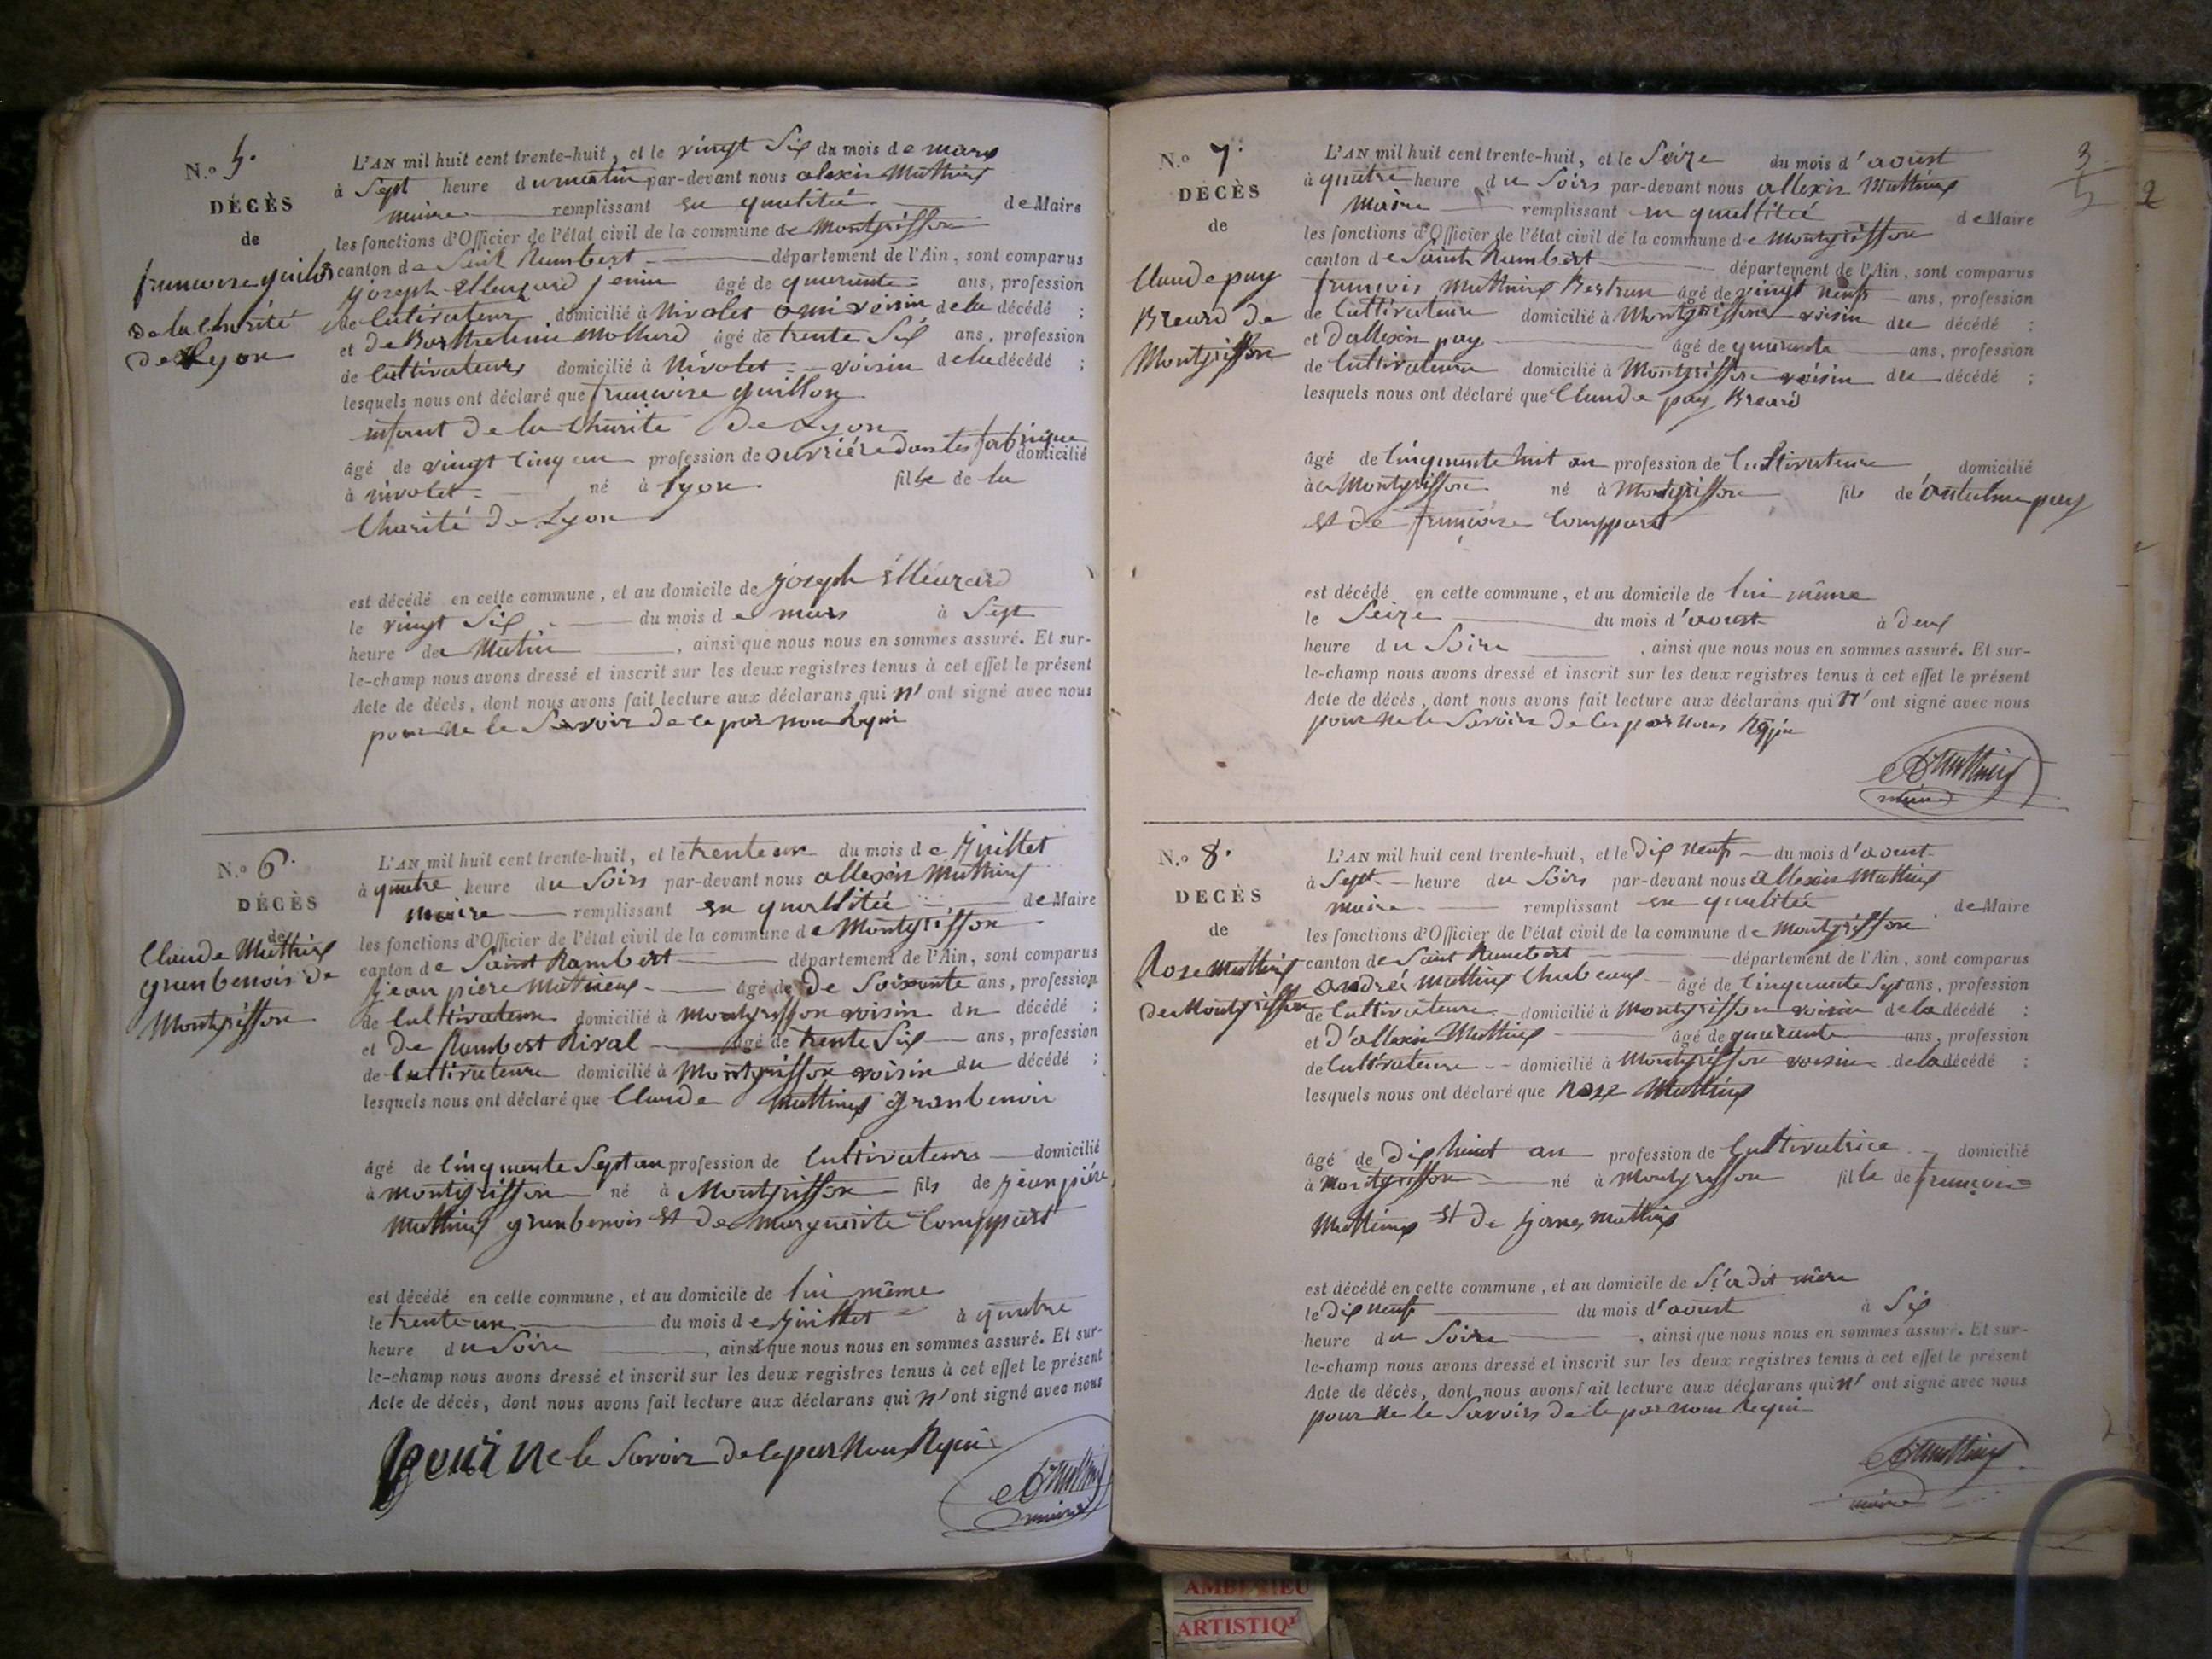 N.o 5.
DÉCÈS
de
francoise guillon
de la charité
de Lyon
L'AN mil huit cent trente-huit, et le vingt Six du mois de mars
à Sept heure du matin par-devant nous alexis Mathieu
maire remplissant en qualitée de Maire
les fonctions d'Officier de l'état civil de la commune de Montgriffon
canton de Saint Rambert département de l'Ain, sont comparus
joseph jenin âgé de quarente ans, profession
de Cultivateur domicilié à Nivolet ami voisin de la décédé ;
et de Barthelemi Mollard âgé de trente Six ans, profession
de Cultivateurs domicilié à Nivolet voisin de la décédé ;
lesquels nous ont déclaré que francoise guillon
enfant de la Charite de Lyon
âgé de vingt Cinq an profession de ouvriére dans les fabrique domicilié
à nivolet né à Lyon fille de la
Charité de Lyon
est décédé en cette commune, et au domicile de joseph
le vingt Six du mois de mars à Sept
heure de Matin, ainsi que nous nous en sommes assuré. Et sur-
le-champ nous avons dressé et inscrit sur les deux registres tenus à cet effet le présent
Acte de décès, dont nous avons fait lecture aux déclarans qui n'ont signé avec nous
pour ne le Savoir de ce par nous Requi
N.o 6.
DÉCÈS
de
Claude Mathieu
granbenois de
Montgriffon
L'AN mil huit cent trente-huit, et le trente un du mois de Juillet
à quatre heure du Soirs par-devant nous allexis Mathieu
maire remplissant en quallitée de Maire
les fonctions d'Officier de l'état civil de la commune de Montgriffon
canton de Saint Rambert département de l'Ain, sont comparus
Jean piere Mathieux âgé de de Soixante ans, profession
de Cultivateur domicilié à Montgriffon voisin du décédé ;
et De Rambert Rival âgé de trente Six ans, profession
de Cultivateure domicilié à Montgriffon voisin du décédé ;
lesquels nous ont déclaré que Claude Mathieux granbenoir
âgé de Cinquente Sept an profession de Cultivateurs domicilié
à montgriffon né à Montgriffon fils de Jean piére
Mathieux granbenois et de marguerite Comppart
est décédé en cette commune, et au domicile de lui même
le trente un du mois de Juillet à quatre
heure du Soire, ainsi que nous nous en sommes assuré. Et sur-
le-champ nous avons dressé et inscrit sur les deux registres tenus à cet effet le présent
Acte de décès, dont nous avons fait lecture aux déclarans qui n'ont signé avec nous
pour Ne le Savoir de ce par Nous Requi
Mathieu
maire
3
2
N.o 7.
DÉCÈS
de
Claude puy
Breard de
Montgriffon
L'AN mil huit cent trente-huit, et le Seize du mois d'aoust
à quatre heure du Soirs par-devant nous allexis Mathieux
Maire remplissant en quallitié de Maire
les fonctions d'Officier de l'état civil de la commune de Montgriffon
canton de Saint Rambert département de l'Ain, sont comparus
francois Mathieux Bertran âgé de vingt neuf ans, profession
de Cultivateure domicilié à Montgriffon voisin du décédé ;
et D'allexis puy âgé de quarante ans, profession
de Cultivateure domicilié à Montgriffon voisin du décédé ;
lesquels nous ont déclaré que Claude puy Breard
âgé de Cinquante huit an profession de Cultivateure domicilié
à Montgriffon né à Montgriffon fils de antelme puy
et de françoise Comppart
est décédé en cette commune, et au domicile de lui même
le Seize du mois d'aoust à deux
heure du Soire, ainsi que nous nous en sommes assuré. Et sur-
le-champ nous avons dressé et inscrit sur les deux registres tenus à cet effet le présent
Acte de décès, dont nous avons fait lecture aux déclarans qui n'ont signé avec nous
pour ne le Savoirs de ce par nous
Mathieu
maire
N.o 8.
DÉCÈS
de
Rose Mathieu
de Montgriffon
L'AN mil huit cent trente-huit, et le Dix neuf du mois d'aoust
à Sept heure du Soirs par-devant nous allexis Mathieu
maire remplissant en qualitée de Maire
les fonctions d'Officier de l'état civil de la commune de Montgriffon
canton de Saint Rambert département de l'Ain, sont comparus
andréi mathieux âgé de Cinquante Sept ans, profession
de Cultivateure domicilié à Montgriffon voisin de la décédé ;
et D'allexis Mathieu âgé de quarante ans, profession
de Cultivateure domicilié à Montgriffon voisin de la décédé ;
lesquels nous ont déclaré que Roze Mathieux
âgé de Dix huit an profession de Cultivatrice domicilié
à Montgriffon né à Montgriffon fille de françois
Mathieux et de mathieu
est décédé en cette commune, et au domicile de mère
le Dix neuf du mois d'aoust à Six
heure du Soire, ainsi que nous nous en sommes assuré. Et sur-
le-champ nous avons dressé et inscrit sur les deux registres tenus à cet effet le présent
Acte de décès, dont nous avons fait lecture aux déclarans qui n'ont signé avec nous
pour Ne le Savoirs de le par nous Requi
Mathieu
maire
AMBERIEU
ARTISTIQ